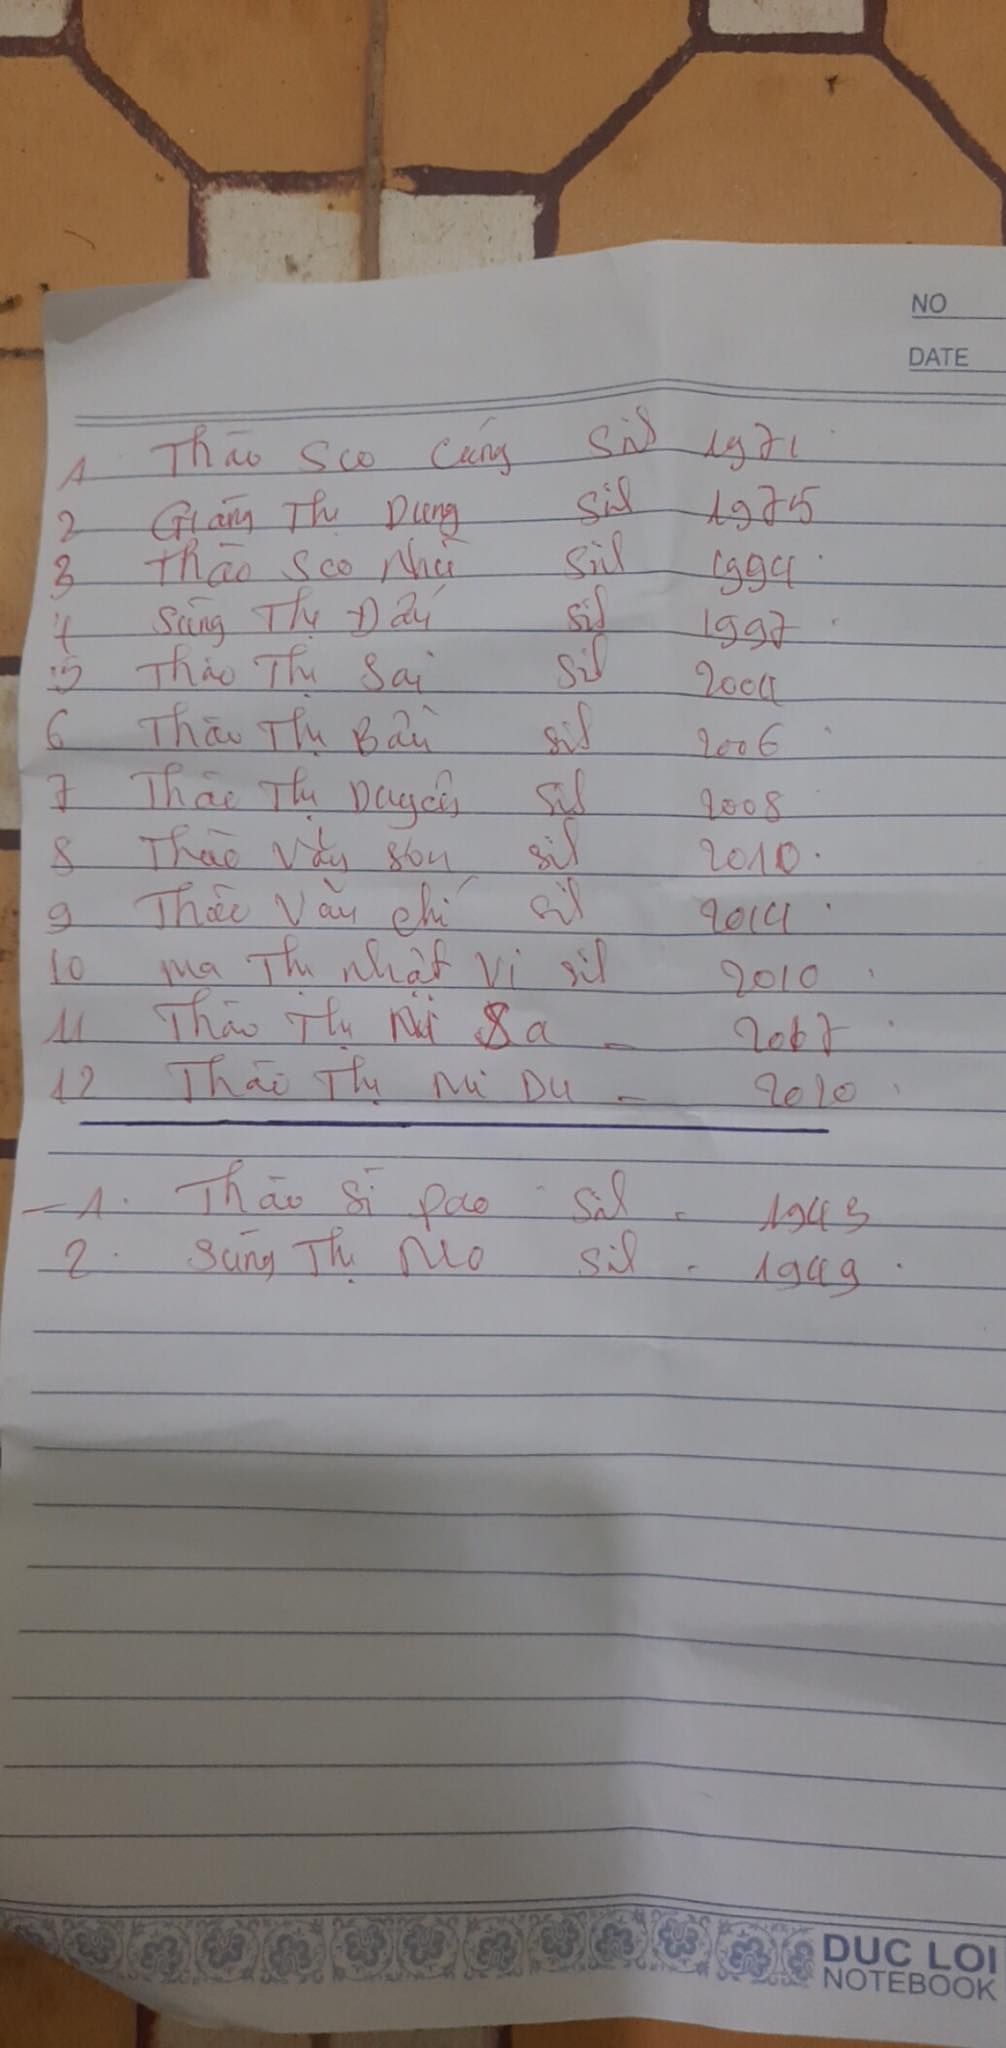 NO
DATE
1 Thào Seo Cúng Sil 1971
2 Giàng Thị Dung Sil 1975
3 Thào Seo Nhà Sil 1994
4 Sùng Thị Dấu Sil 1997
5 Thào Thị Sai Sil 2004
6 Thào Thị Bầu Sil 2006
7 Thào Thị Duyên Sil 2008
8 Thào Văn Sơn Sil 2010
9 Thào Văn Chí Sil 2014
10 ma Thị Nhật Vi Sil 2010
11 Thào Thị Sa - 2017
12 Thào Thị Mi Du - 2020
- 1. Thào Sì Pao Sil - 1943
2. Sùng Thị Mo Sil - 1949
DUC LOI
NOTEBOOK